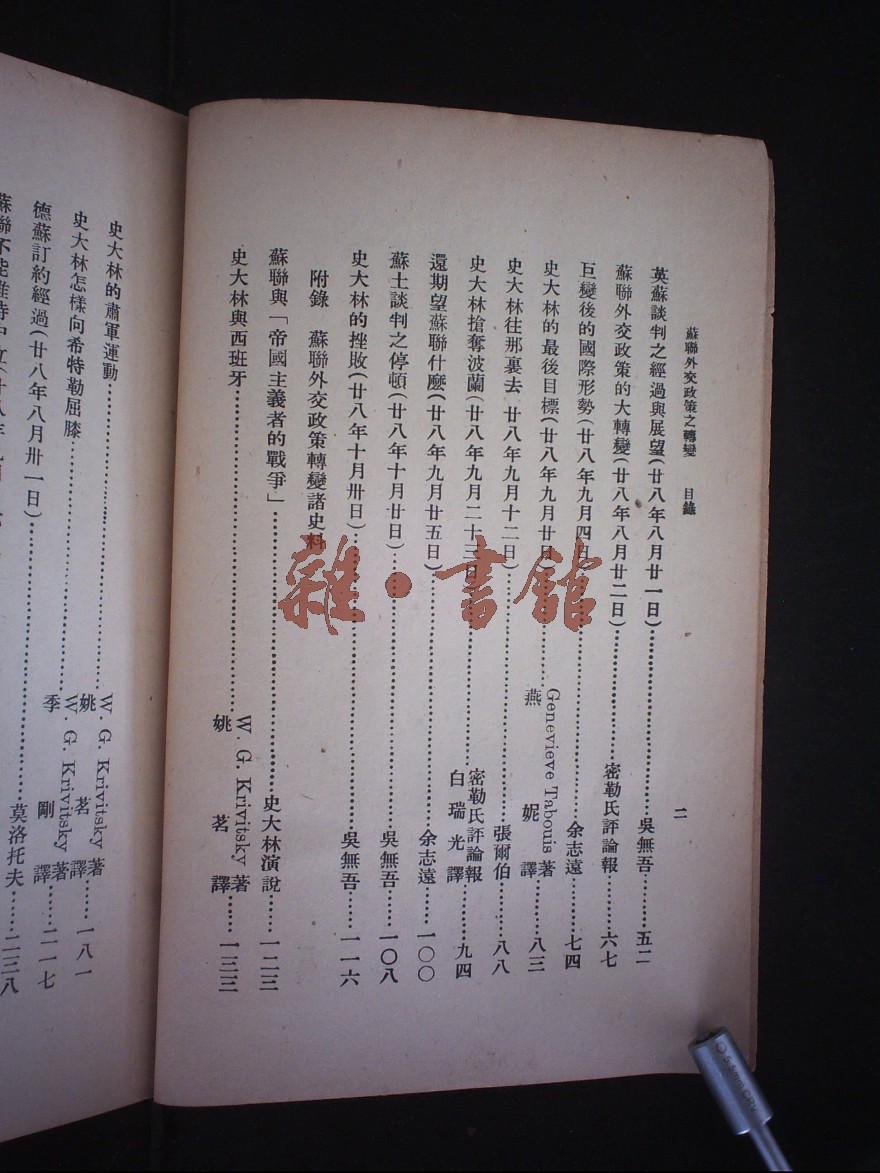 蘇聯外交政策之轉變　目錄　二
英蘇談判之經過與展望(廿八年八月廿一日)……吳無吾……五二
蘇聯外交政策的大轉變(廿八年八月廿二日)……密勒氏評論報……六七
巨變後的國際形勢(廿八年九月四日)……余志遠……七四
史大林的最後目標(廿八年九月廿日)……Genevieve Tabouis著 燕妮譯……八三
史大林往那裏去 廿八年九月十二日)……張爾伯……八八
史大林搶奪波蘭(廿八年九月二十三日)……密勒氏評論報 白瑞光譯……九四
還期望蘇聯什麼(廿八年九月廿五日)……余志遠……一〇〇
蘇土談判之停頓(廿八年十月廿日)……吳無吾……一〇八
史大林的挫敗(廿八年十月卅日)……吳無吾……一一六
附錄　蘇聯外交政策轉變諸史料
蘇聯與「帝國主義者的戰爭」……史大林演說……一二三
史大林與西班牙……W. G. Krivitsky著 姚茗譯……一三三
史大林的肅軍運動……W. G. Krivitsky著 姚茗譯……一八一
史大林怎樣向希特勒屈膝……W. G. Krivitsky著 季剛譯……二一七
德蘇訂約經過(廿八年八月卅一日)……莫洛托夫……二三八
雜·書館
5.5mm CRV